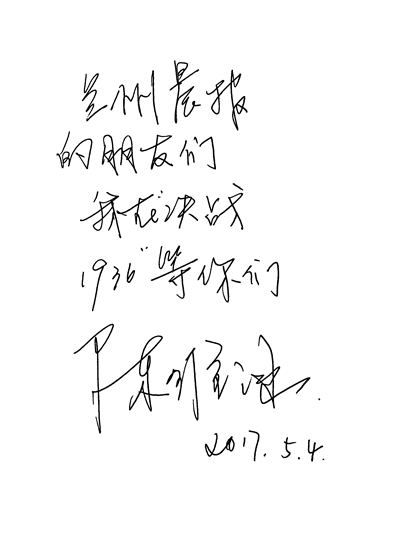 兰州晨报
的朋友们
我在"决战
1936"等你们
2017.5.4.